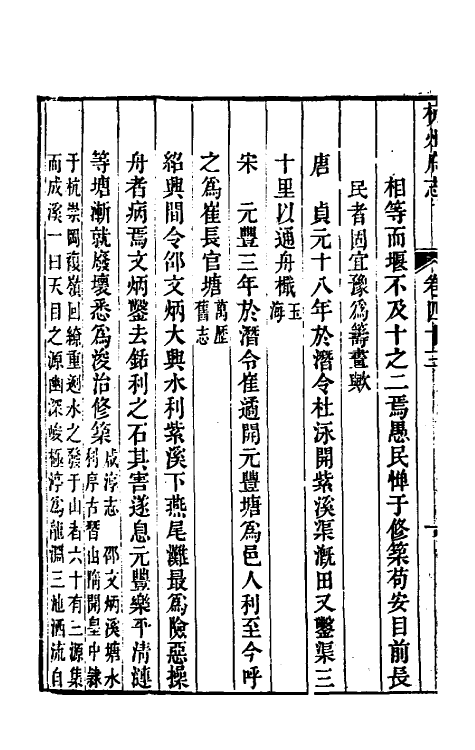 杭州府志
卷四十三
相等而堰不及十之二焉愚民憚于修築苟安目前長
民者固宜豫爲籌畫歟
唐　貞元十八年於潛令杜泳開紫溪渠漑田又鑿渠三
十里以通舟檝玉海
宋　元豐三年於潛令崔遹開元豐塘爲邑人利至今呼
之爲崔長官塘萬歷舊志
紹興間令邵文炳大興水利紫溪下燕尾灘最爲險惡操
舟者病焉文炳鑿去銛利之石其害遂息元豐樂平淸漣
等塘漸就廢壞悉爲浚治修築咸淳志　邵文炳溪塘水
利序古朁山隋開皇中隸
于杭崇岡複嶺回繚重遡水之發于山者六十有二源集
而成溪一曰天目之源幽深峻極渟爲龍淵三池洒流自